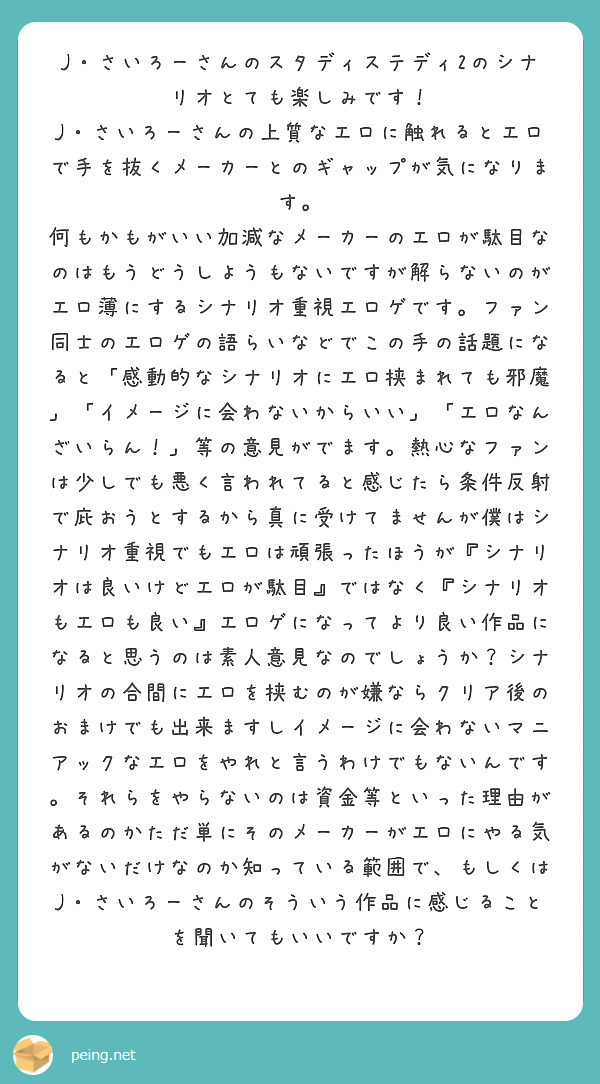 J・さいろーさんのスタディステディ2のシナ
リオとても楽しみです！
J・さいろーさんの上質なエロに触れるとエロ
で手を抜くメーカーとのギャップが気になりま
す。
何もかもがいい加減なメーカーのエロが駄目な
のはもうどうしようもないですが解らないのが
エロ薄にするシナリオ重視エロゲです。ファン
同士のエロゲの語らいなどでこの手の話題にな
ると「感動的なシナリオにエロ挟まれても邪魔
」「イメージに会わないからいい」「エロなん
ざいらん！」等の意見がでます。熱心なファン
は少しでも悪く言われてると感じたら条件反射
で庇おうとするから真に受けてませんが僕はシ
ナリオ重視でもエロは頑張ったほうが『シナリ
オは良いけどエロが駄目』ではなく『シナリオ
もエロも良い』エロゲになってより良い作品に
なると思うのは素人意見なのでしょうか？シナ
リオの合間にエロを挟むのが嫌ならクリア後の
おまけでも出来ますしイメージに会わないマニ
アックなエロをやれと言うわけでもないんです
。それらをやらないのは資金等といった理由が
あるのかただ単にそのメーカーがエロにやる気
がないだけなのか知っている範囲で、もしくは
J・さいろーさんのそういう作品に感じること
を聞いてもいいですか？
peing.net